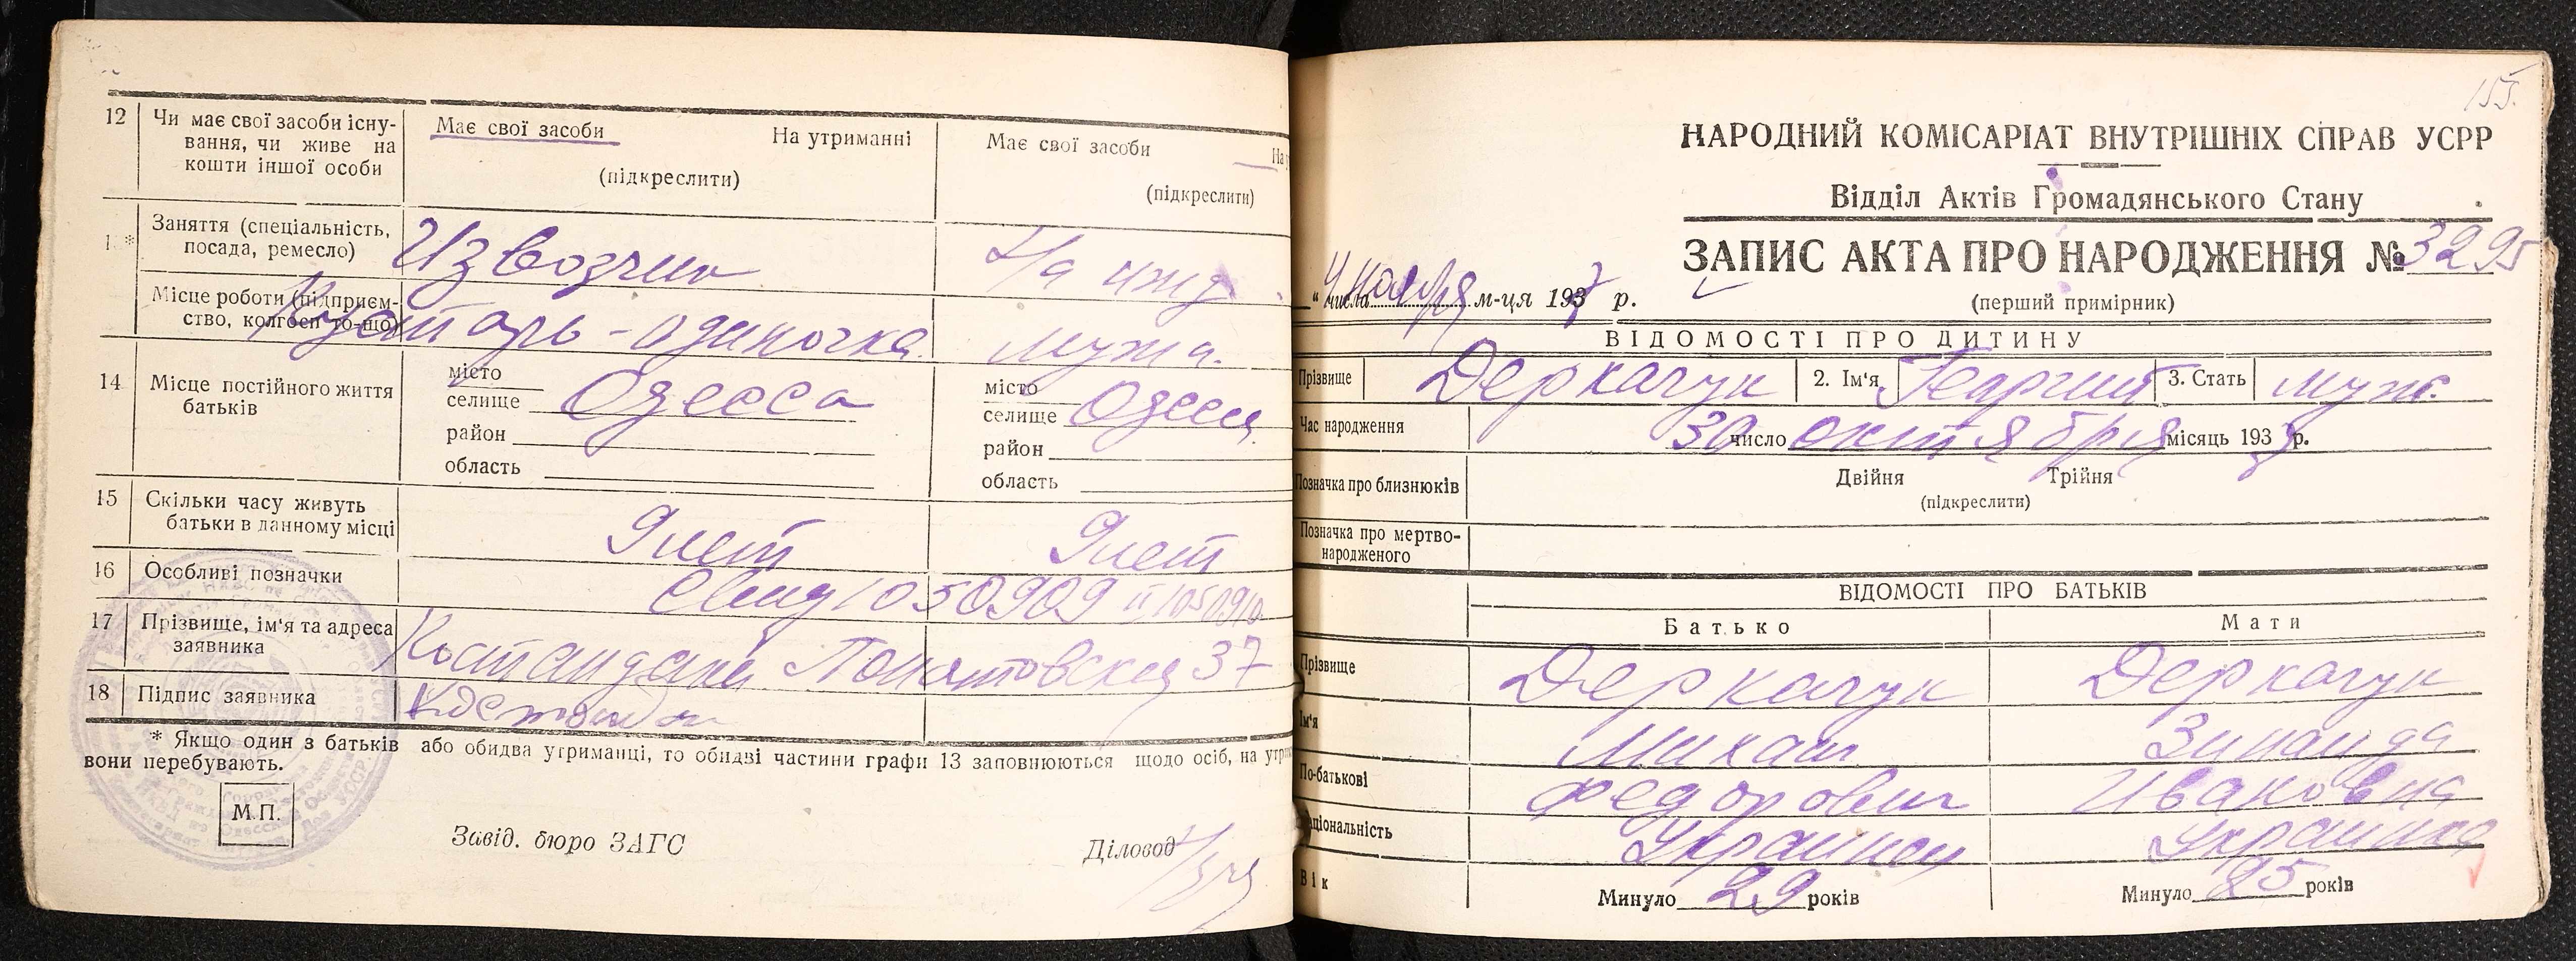 12 Чи має свої засоби існу-
вання, чи живе на
кошти іншої особи
Має свої засоби На утриманні
(підкреслити)
Має свої засоби
(підкреслити)
Заняття (спеціальність,
посада, ремесло)
Извозчик
На ижд.
Місце роботи (підприєм-
ство, колгосп то-що)
Кустарь-одиночка.
мужа.
14 Місце постійного життя
батьків
місто
селище Одесса
район
область
місто
селище Одесса
район
область
15 Скільки часу живуть
батьки в данному місці
9 лет
9 лет
16 Особливі позначки
1050909 1050910
17 Прізвище, ім'я та адреса
заявника
37
18 Підпис заявника
* Якщо один з батьків або обидва утриманці, то обидві частини графи 13 заповнюються щодо осіб, на
вони перебувають.
М.П.
Завід. бюро ЗАГС
Діловод
155.
НАРОДНИЙ КОМІСАРІАТ ВНУТРІШНІХ СПРАВ УСРР
Відділ Актів Громадянського Стану
ЗАПИС АКТА ПРО НАРОДЖЕННЯ № 3295
(перший примірник)
" 4 числа ноября м-ця 1937 р.
ВІДОМОСТІ ПРО ДИТИНУ
Прізвище Деркачук 2. Ім'я Георгий 3. Стать муж.
Час народження 30 число октября місяць 1937 р.
Позначка про близнюків
Двійня Трійня
(підкреслити)
Позначка про мертво-
народженого
ВІДОМОСТІ ПРО БАТЬКІВ
Батько Мати
Прізвище Деркачук Деркачук
Ім'я Михаил Зинаида
По-батькові Федорович Ивановна
Національність Украинец Украинка
Вік Минуло 29 років Минуло 25 років